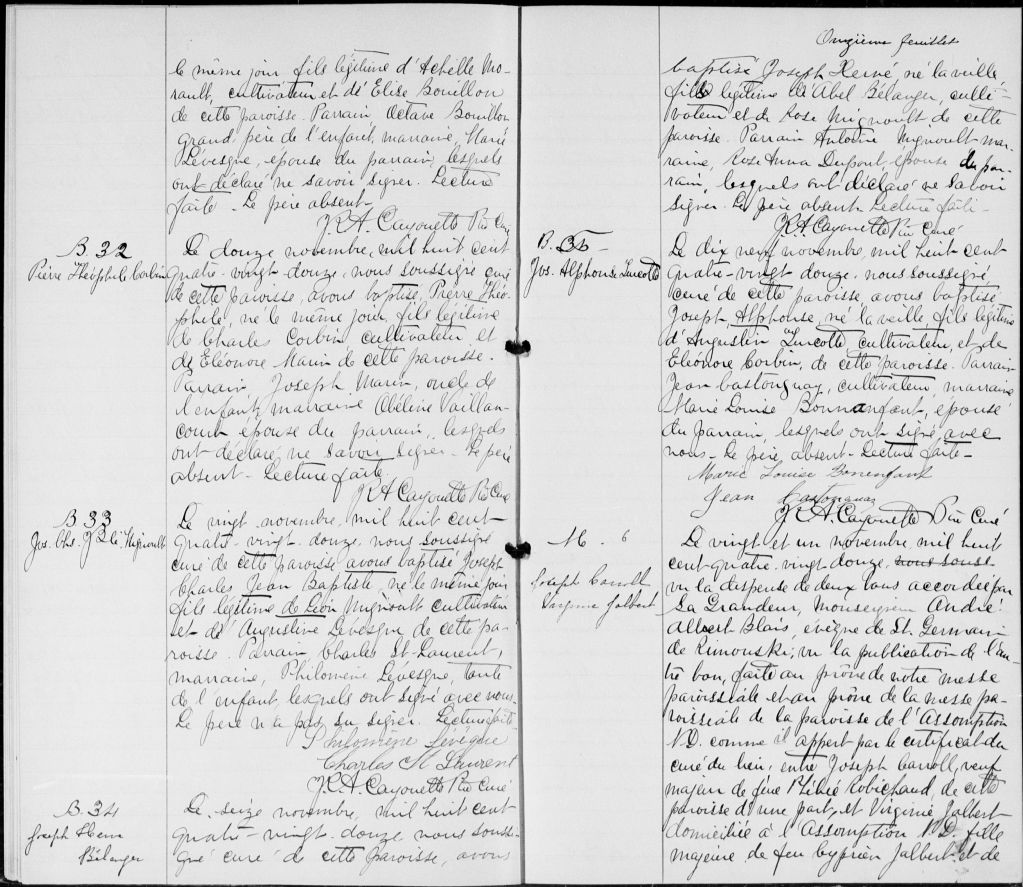 le même jour fils légitime d'Achelle Mo-
rault, cultivateur et de Elise Bouillon
de cette paroisse. Parrain Octave Bouillon
grand père de l'enfant, marraine, Marie
Lévesque, épouse du parrain, lesquels
ont déclaré ne savoir signer. Lecture
faite. Le père absent-
J.A. Cayouette Ptre Curé
B 32
Pierre Théophile Corbin
Le douze novembre, mil huit cent
quatre-vingt-douze, nous soussigné curé
de cette paroisse, avons baptisé, Pierre Théo-
phile, né le même jour, fils légitime
de Charles Corbin cultivateur et
de Eléonore Marin de cette paroisse.
Parrain Joseph Marin, oncle de
l'enfant, marraine Obéline Vaillan-
court épouse du parrain, lesquels
ont déclaré ne savoir signer - Le père
absent - Lecture faite.
J.A. Cayouette Ptre Curé
B 33
Jos. Chs. J. Bte. Mignault
Le vingt novembre, mil huit cent-
quatre-vingt-douze, nous soussigné
curé de cette paroisse avons baptisé Joseph
Charles Jean Baptiste, né le même jour
fils légitime de Léon Mignoult cultivateur
et de Augustine Lévesque, de cette pa-
roisse. Parrain Charles St-Laurent,
marraine, Philomène Lévesque, tante
de l'enfant, lesquels ont signé avec nous.
Le père n'a pas su signer. Lecture faite
Philomène Lévêque
Charles St Laurent
J.A. Cayouette Ptre Curé
B. 34
Joseph Herve
Bélanger
Le seize novembre, mil huit cent
quatre-vingt-douze nous sous-
signé curé de cette paroisse, avons
Onzième feuillet
baptisé Joseph Hervé, né la veille
fils légitime d'Abel Bélanger, culti-
vateur et de Rose Mignoult de cette
paroisse. Parrain Antoine Mignoult mar-
raine, Rose Anna Dupont épouse du par-
rain, lesquels ont déclaré ne savoir
signer. Le père absent. Lecture faite-
J.A. Cayouette Ptre Curé
B. 35-
Jos. Alphonse Turcotte
Le dix neuf novembre, mil huit cent
quatre-vingt douze, nous soussigné
curé de cette paroisse, avons baptisé
Joseph, Alphonse, né la veille fils légitime
d'Augustin Turcotte cultivateur, et de
Eléonore Corbin, de cette paroisse. Parrain
Jean Castonguay, cultivateur, marraine
Marie Louise Bonnanfant, épouse
du parrain, lesquels ont signé, avec
nous - Le père, absent - Lecture faite-
Marie Louise Bonenfant
Jean Castonguay
J.A. Cayouette Ptre Curé
M. 6
Joseph Carroll
Virginie Jalbert
Le vingt et un novembre, mil huit
cent-quatre-vingt douze, nous souss
vu la dispense de deux bans accordée par
Sa Grandeur, Monseigneur André
Albert Blais, évêque de St. Germain
de Rimouski; vu la publication de l'au-
tre ban, faite au prône de notre messe
paroissiale et au prône de la messe pa-
roissiale de la paroisse de l'Assomption
N.D. comme il appert par le certificat du
curé du lieu, entre Joseph Carroll, veuf
majeur de feue Robichaud, de cette
paroisse d'une part, et Virginie Jalbert
domiciliée à l'Assomption N.D. fille
majeure de feu Cyprien Jalbert et de